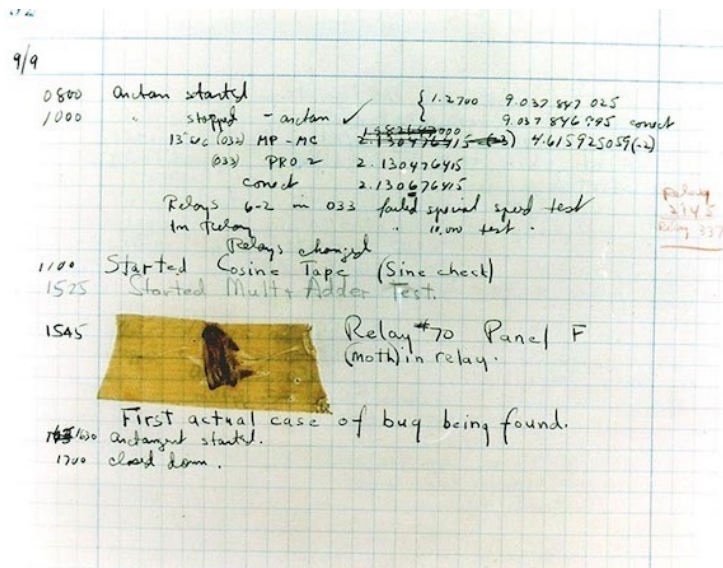 9/9
0800 arctan started { 1.2700 9.037 847 025
1000 " stopped - arctan ✓ 9.037 846 995 correct
13"uc (032) MP-MC 2.130476415 (-3) 4.615925059(-2)
(033) PRO 2 2.130476415
correct 2.130676415
Relays 6-2 in 033 failed special speed test
In Relay " 10,000 test .
Relays changed
Relay
2145
Relay 337
1100 Started Cosine Tape (Sine check)
1525 Started Mult + Adder Test.
1545 Relay #70 Panel F
(moth) in relay.
First actual case of bug being found.
1630 arctangent started.
1700 closed down.